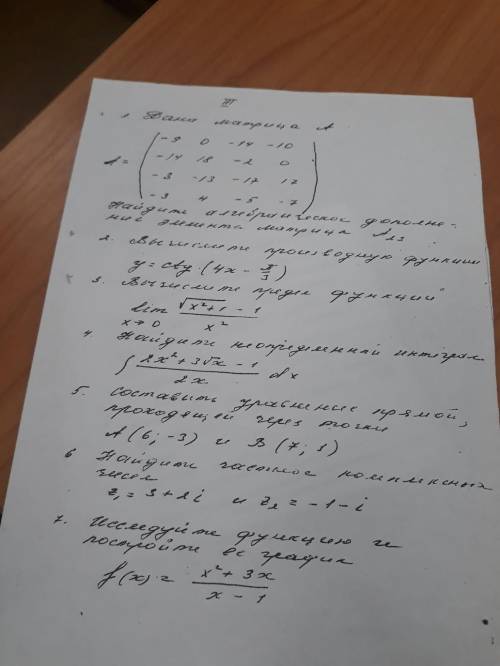 III
1. Дана матрица A
A = ( -9 0 -14 -10
-14 18 -2 0
-3 -13 -17 17
-3 4 -5 -7 )
Найдите алгебраическое дополне-
ние элемента матрицы A₂₃
2. Вычислите производную функции
y = ctg (4x - π/3)
3. Вычислите предел функции
lim x→0 (√(x²+1) - 1)/x²
4. Найдите неопределенный интеграл
∫ (2x² + 3√x - 1)/2x dx
5. Составить уравнение прямой,
проходящей через точки
A (6; -3) и B (7; 1)
6 Найдите частное комплексных
чисел
z₁ = 3 + 2i и z₂ = -1 - i
7. Исследуйте функцию и
постройте её график
f(x) = (x² + 3x)/(x - 1)